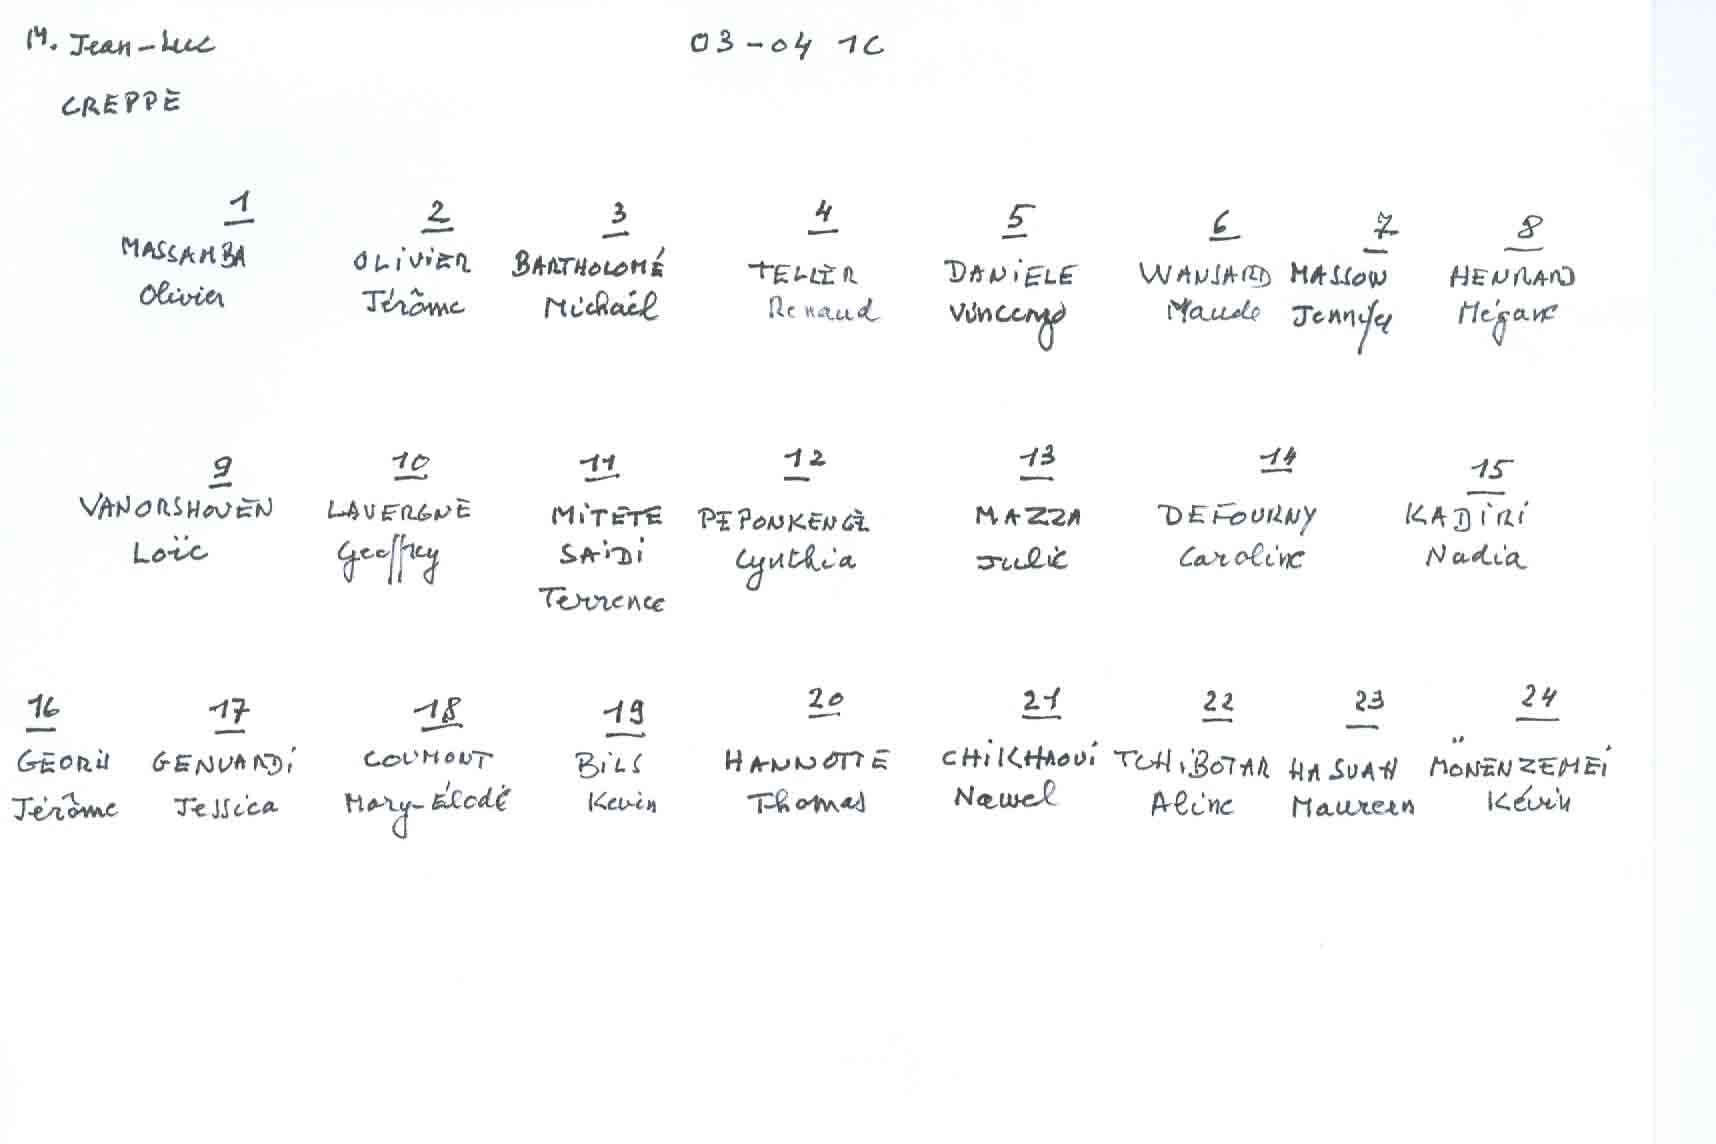 M. Jean-Luc 03-04 1C
CREPPE
1 2 3 4 5 6 7 8
MASSAMBA OLIVIER BARTHOLOMÉ TELLER DANIELE WANSARD MASSOW HENRARD
Olivier Jérôme Michaël Renaud Vincenzo Maude Jennyfer Mégane
9 10 11 12 13 14 15
VANORSHOVEN LAVERGNE MITETE PEPONKENGE MAZZA DEFOURNY KADIRI
Loïc Geoffrey SAIDI Cynthia Julie Caroline Nadia
Terrence
16 17 18 19 20 21 22 23 24
GENUARDI COUMONT BILS HANNOTTE CHIKHAOUI TCHIBOTAR MÖNENZEMEI
Jérôme Jessica Mary-Élodé Kevin Thomas Nawel Aline Maureen Kévin